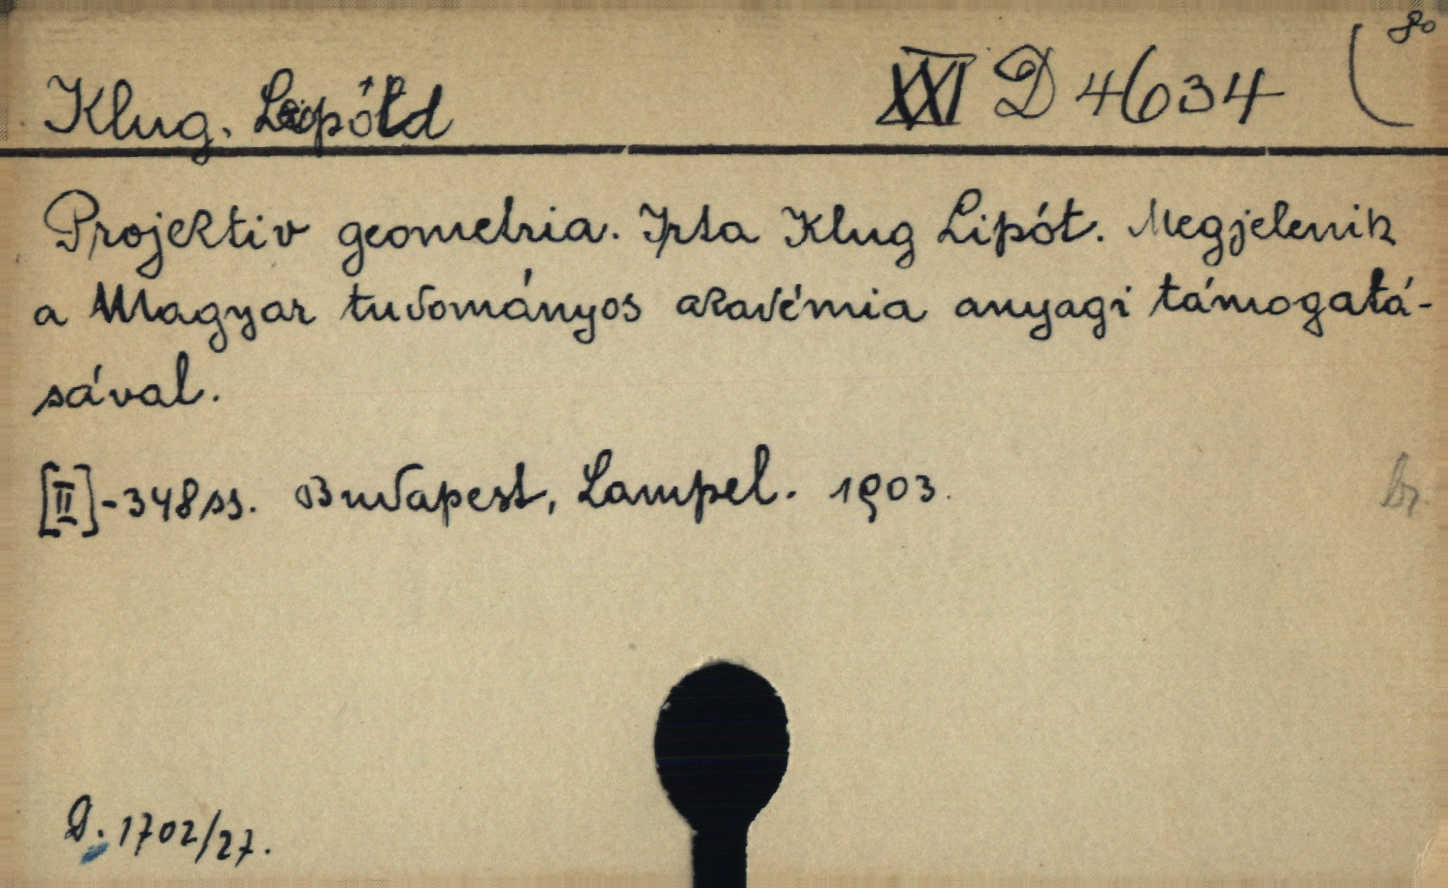 Klug, Leopold XXI D 4634 (8°
Projektiv geometria. Irta Klug Lipót. Megjelenik
a Magyar tudományos akadémia anyagi támogatá-
sával.
[II]-348 ss. Budapest, Lampel. 1903.
br.
D. 1702/27.